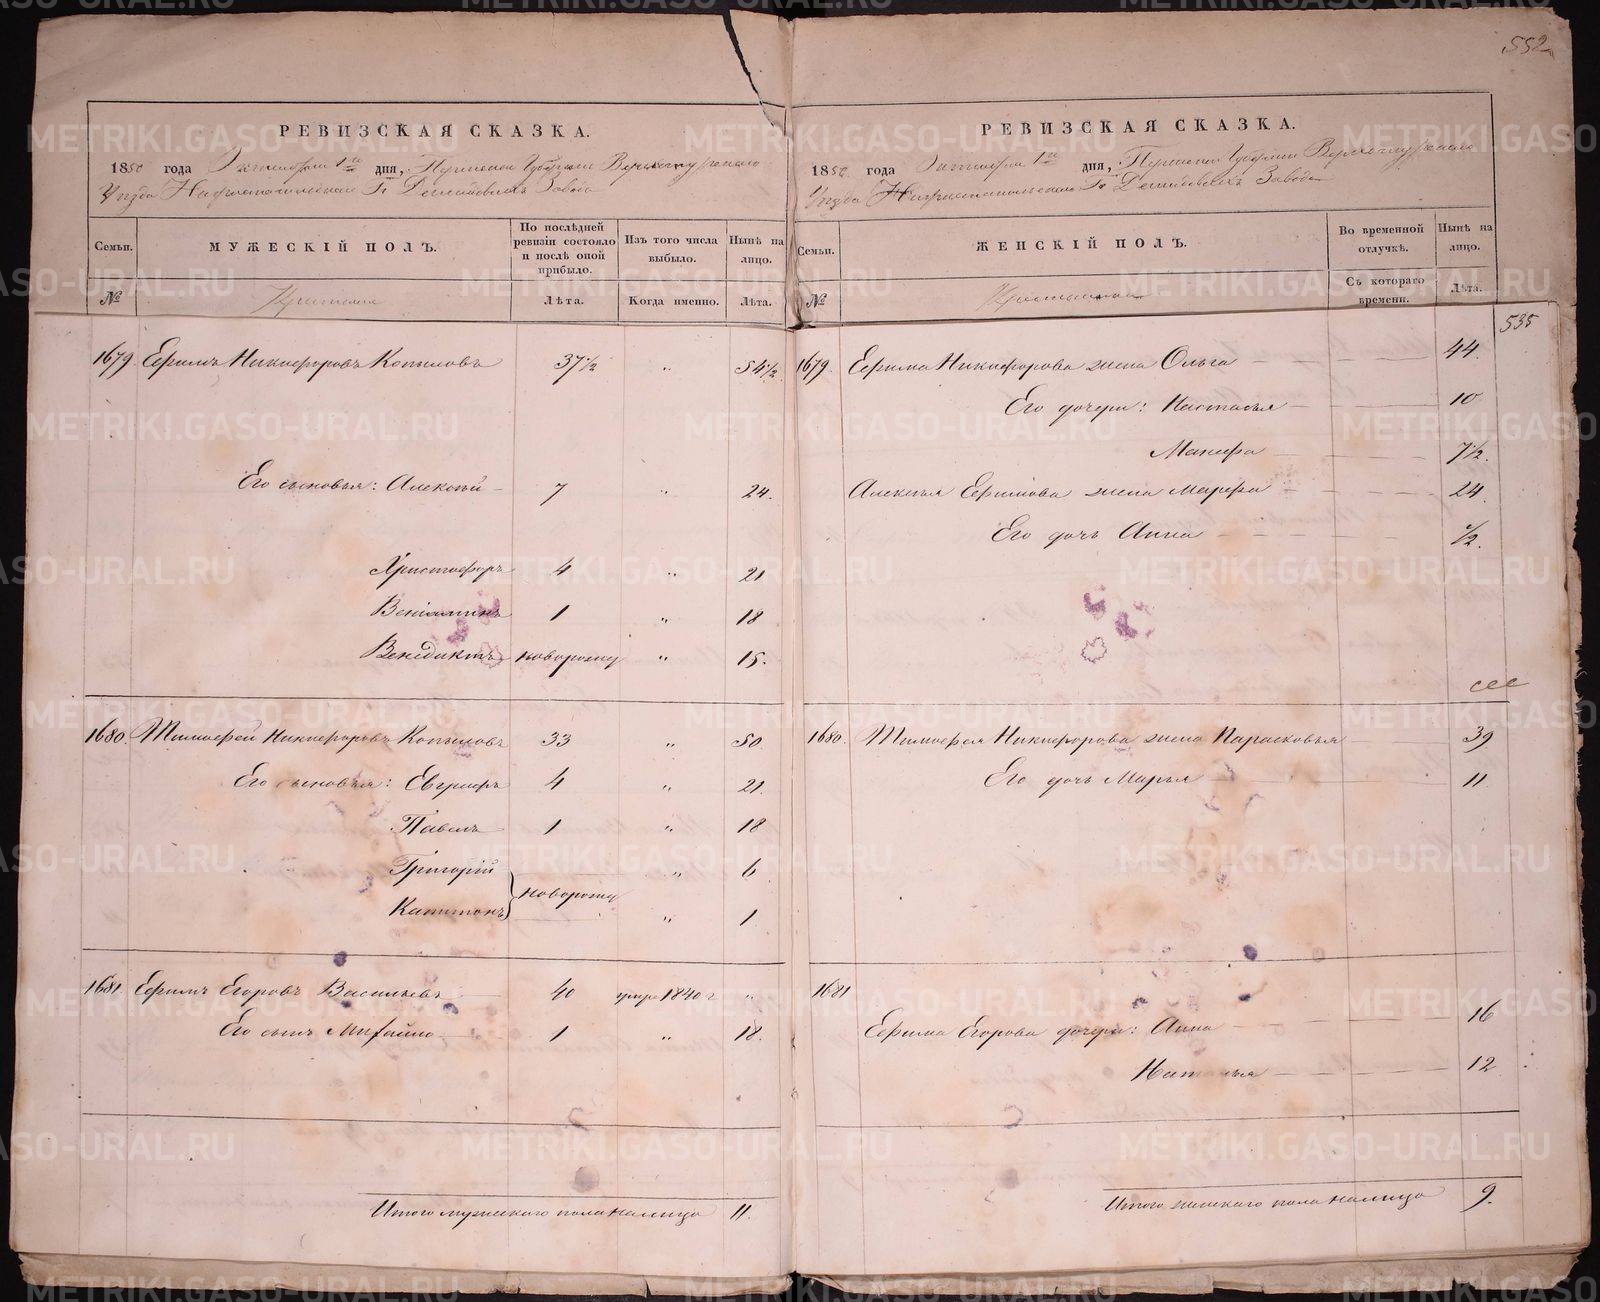 552
РЕВИЗСКАЯ СКАЗКА.
1850 года Октября 1го дня, Пермской Губернии Верхотурскаго
Уѣзда Нижнетагильскаго Гг. Демидовыхъ Завода
Семьи. МУЖЕСКІЙ ПОЛЪ. По послѣдней ревизіи состояло и послѣ оной прибыло. Изъ того числа выбыло. Нынѣ на лицо.
№ Крестьяне Лѣта. Когда именно. Лѣта.
1679. Ефимъ Никифоровъ Копыловъ 37½ „ 54½
Его сыновья: Алексѣй 7 „ 24.
Христофоръ 4 „ 21
Веніаминъ 1 „ 18
Венедиктъ новорожд „ 15.
1680. Тимофей Никифоровъ Копыловъ 33 „ 50
Его сыновья: Евграфъ 4 „ 21.
Павелъ 1 „ 18
Григорій „ 6
новорожд
Капитонъ „ 1
1681. Ефимъ Егоровъ Васильевъ 40 умре 1840 г „
Его сынъ Михайло 1 „ 18.
Итого мужескаго пола налицо 11.
РЕВИЗСКАЯ СКАЗКА.
1850 года Октября 1го дня, Пермской Губерніи Верхотурскаго
Уѣзда Нижнетагильскаго Гг. Демидовыхъ Завода
Семьи. ЖЕНСКІЙ ПОЛЪ. Во временной отлучкѣ. Нынѣ на лицо.
№ Крестьянки Съ котораго времени. Лѣта.
535
1679. Ефима Никифорова жена Ольга 44.
Его дочери: Настасья 10
Манефа 7½.
Алексѣя Ефимова жена Марфа 24
Его дочь Анна ½.
1680. Тимофея Никифорова жена Парасковья 39
Его дочь Марья 11
1681
Ефима Егорова дочери: Анна 16
Наталья 12
Итого женскаго пола налицо 9.
METRIKI.GASO-URAL.RU